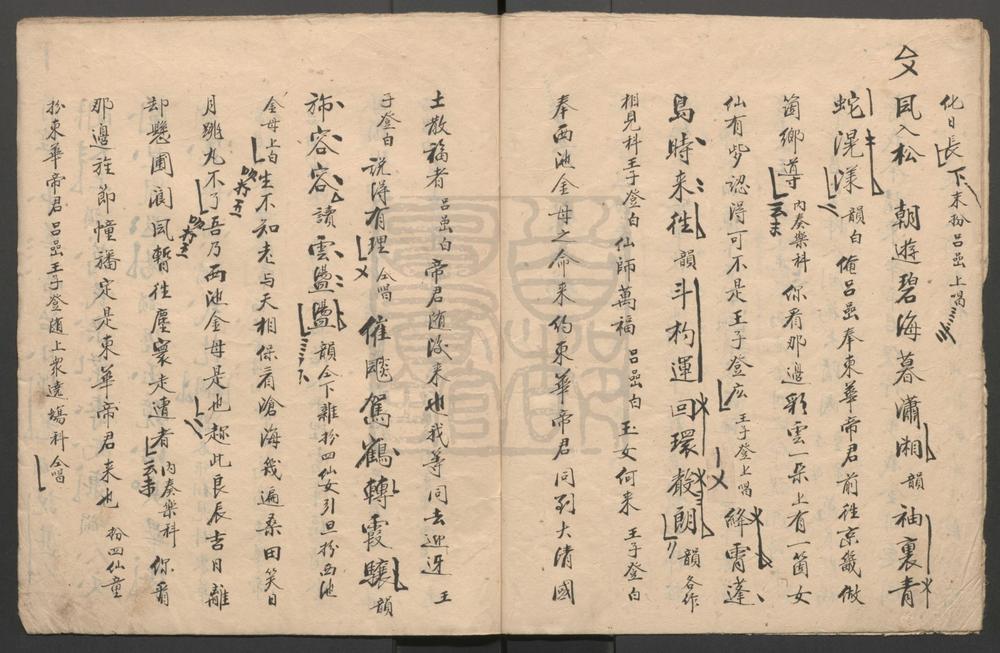 化日長 下 末扮呂嵒上唱
風入松 朝遊碧海暮瀟湘 韻 袖裏青
蛇滉漾 韻 白 俺呂嵒奉東華帝君前往京畿做
箇鄉導 內奏樂科 你看那邊彩雲一朶上有一箇女
仙有些認得可不是王子登庅 王子登上唱 絳霄蓬
島時來徃 韻 斗杓運回環 韻 各作
相見科王子登白 仙師萬福 呂嵒白 玉女何来 王子登白
奉西池金母之命来約東華帝君同到大清國
土散福者 呂嵒白 帝君随後来也我等同去迎迓 王
子登白 說得有理 仝唱 催飈駕鶴轉霞驤 韻
旆容容 讀 雲盪盪 韻 仝下 雜扮四仙女引旦扮西池
金母上白 生不知老与天相保看滄海幾遍桑田笑日
月跳丸不了吾乃西池金母是也趂此良辰吉日離
却懸圃閬風暫徃塵寰走遭者 內奏樂科 你看
那邉旌節幢旛定是東華帝君来也 扮四仙童
扮東華帝君呂嵒王子登随上衆遶場科仝唱